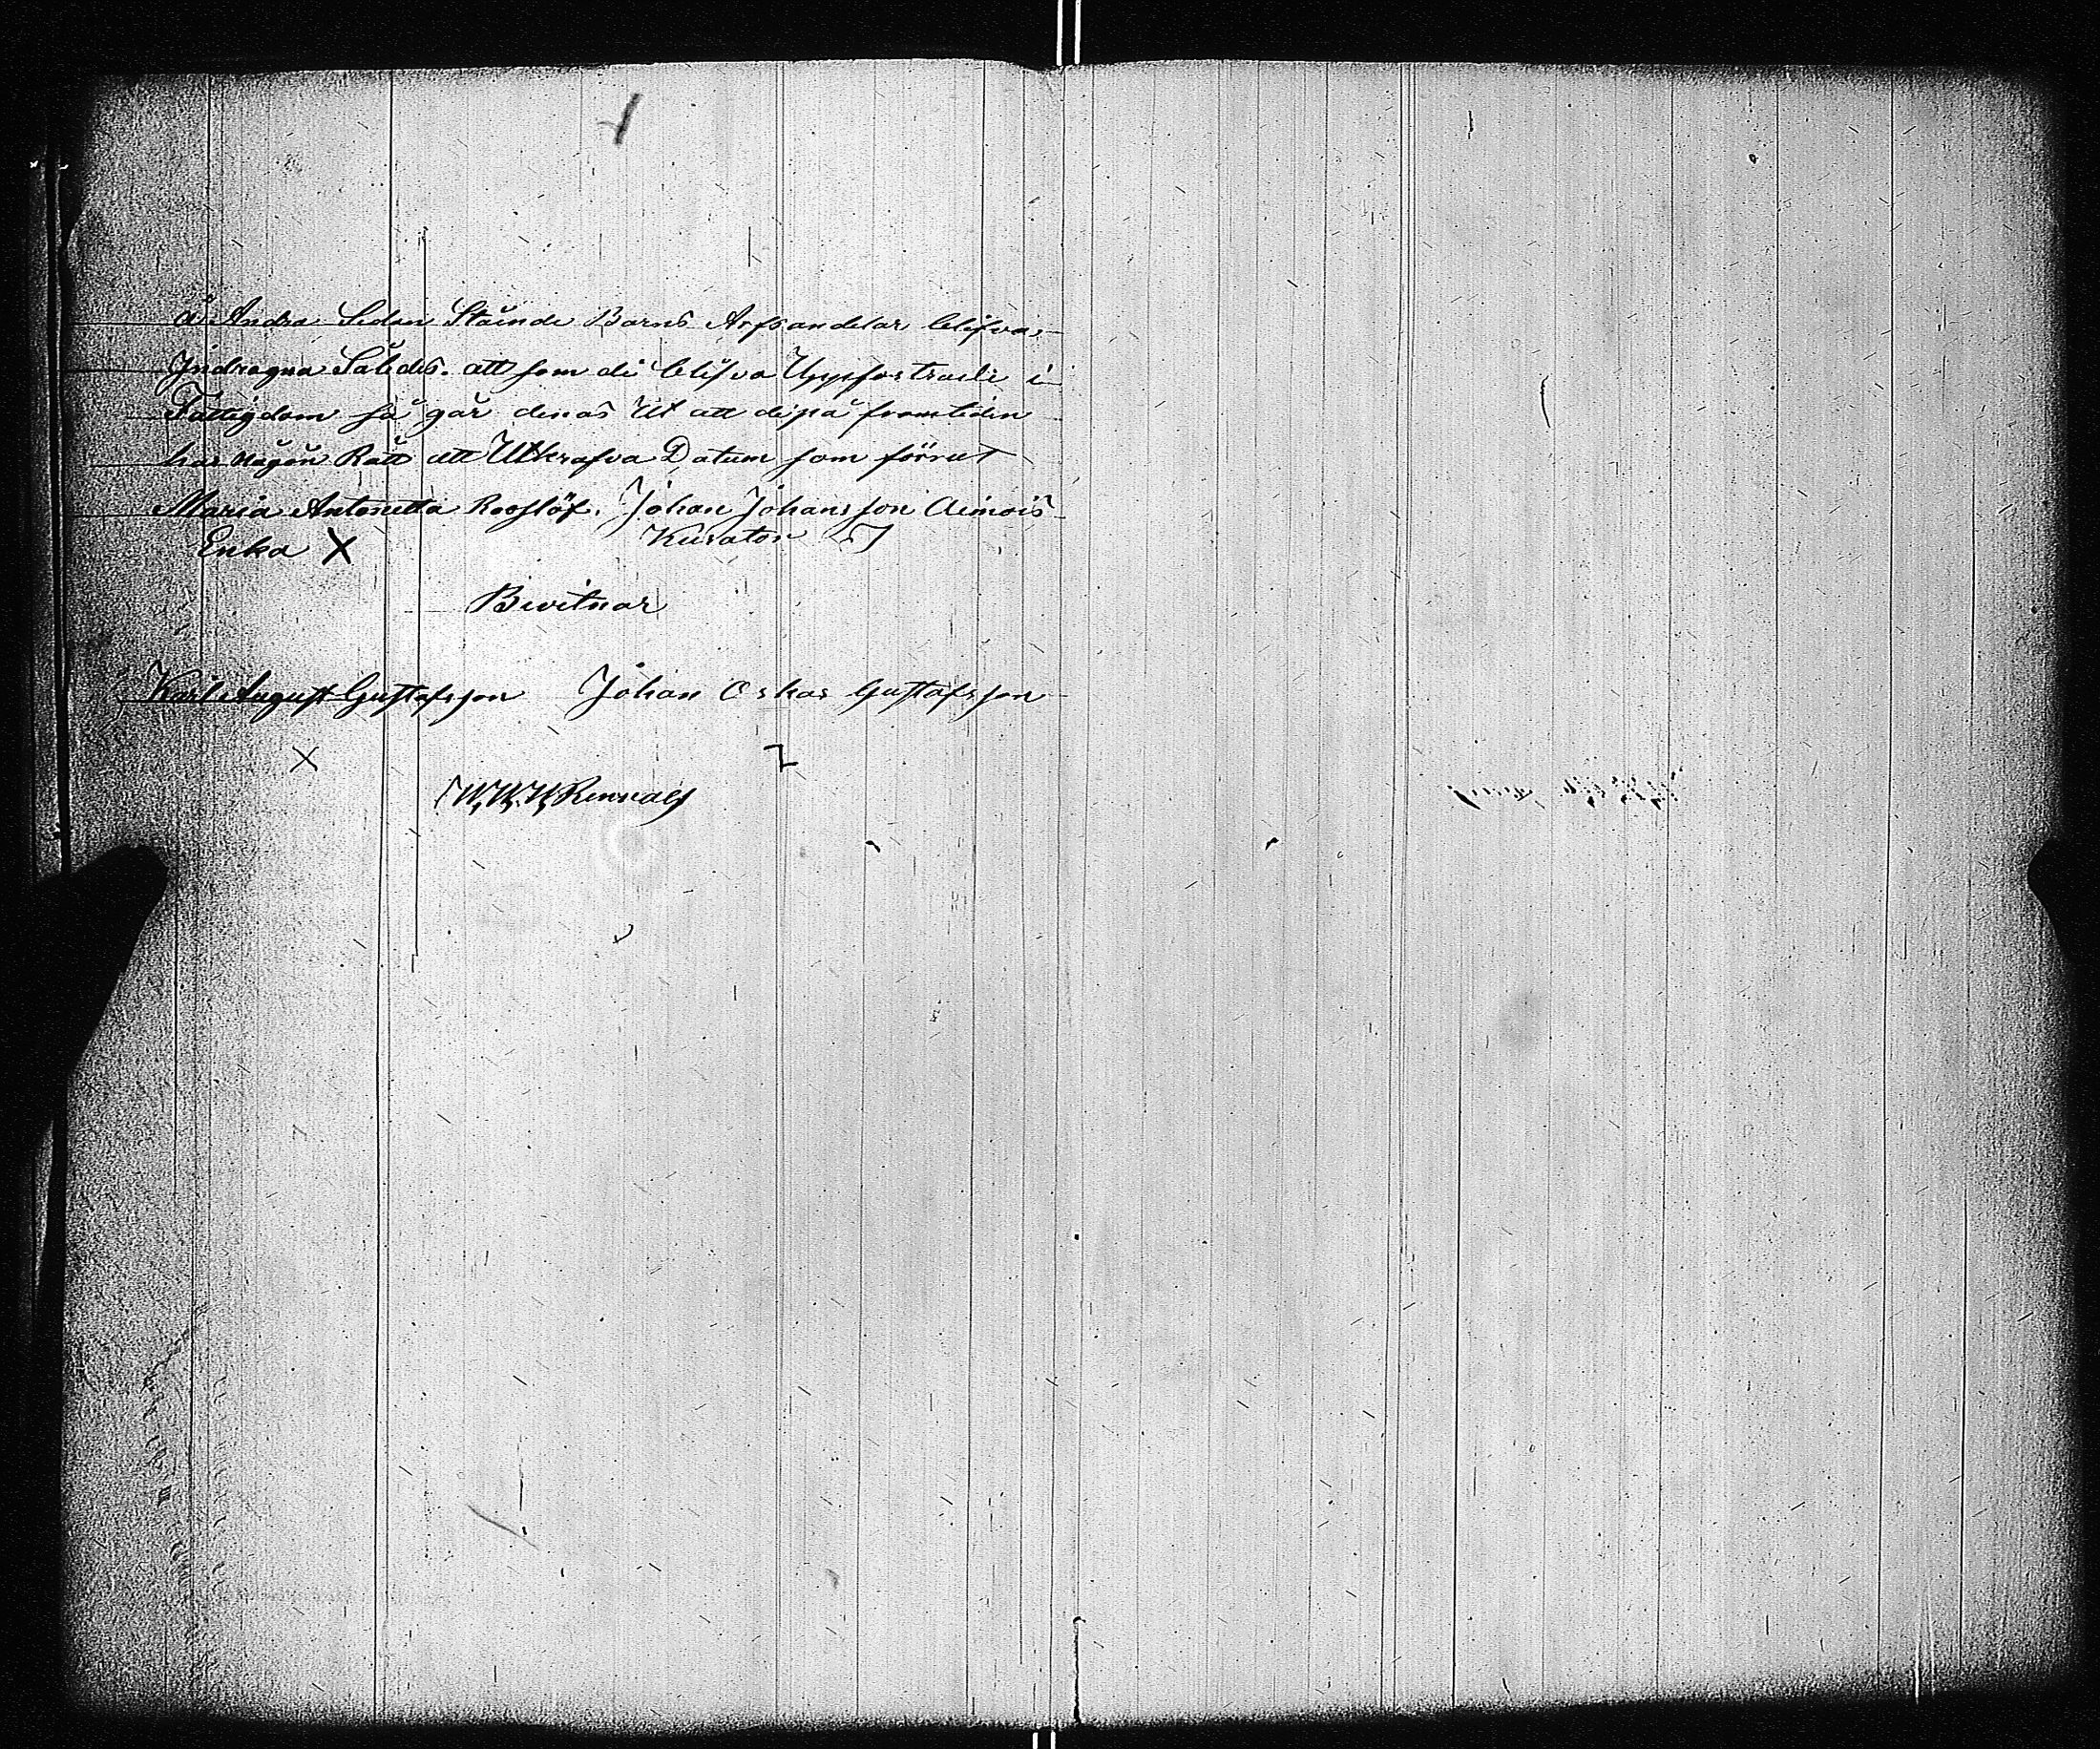 å Andra Sidan Stående Barns Arfsandelar blifva
Indragna Således. att som di blifva Uppfostrade i
Fattigdom så går denas Ut att di på framtiden
har någon Rätt att Utkrafva Datum som förrut
Maria Antonetta Rooslöf. Johan Johansson Aimois
Enka X Kurator
Bivitnar
Karl August Gustafsson Johan Oskar Gustafsson
X